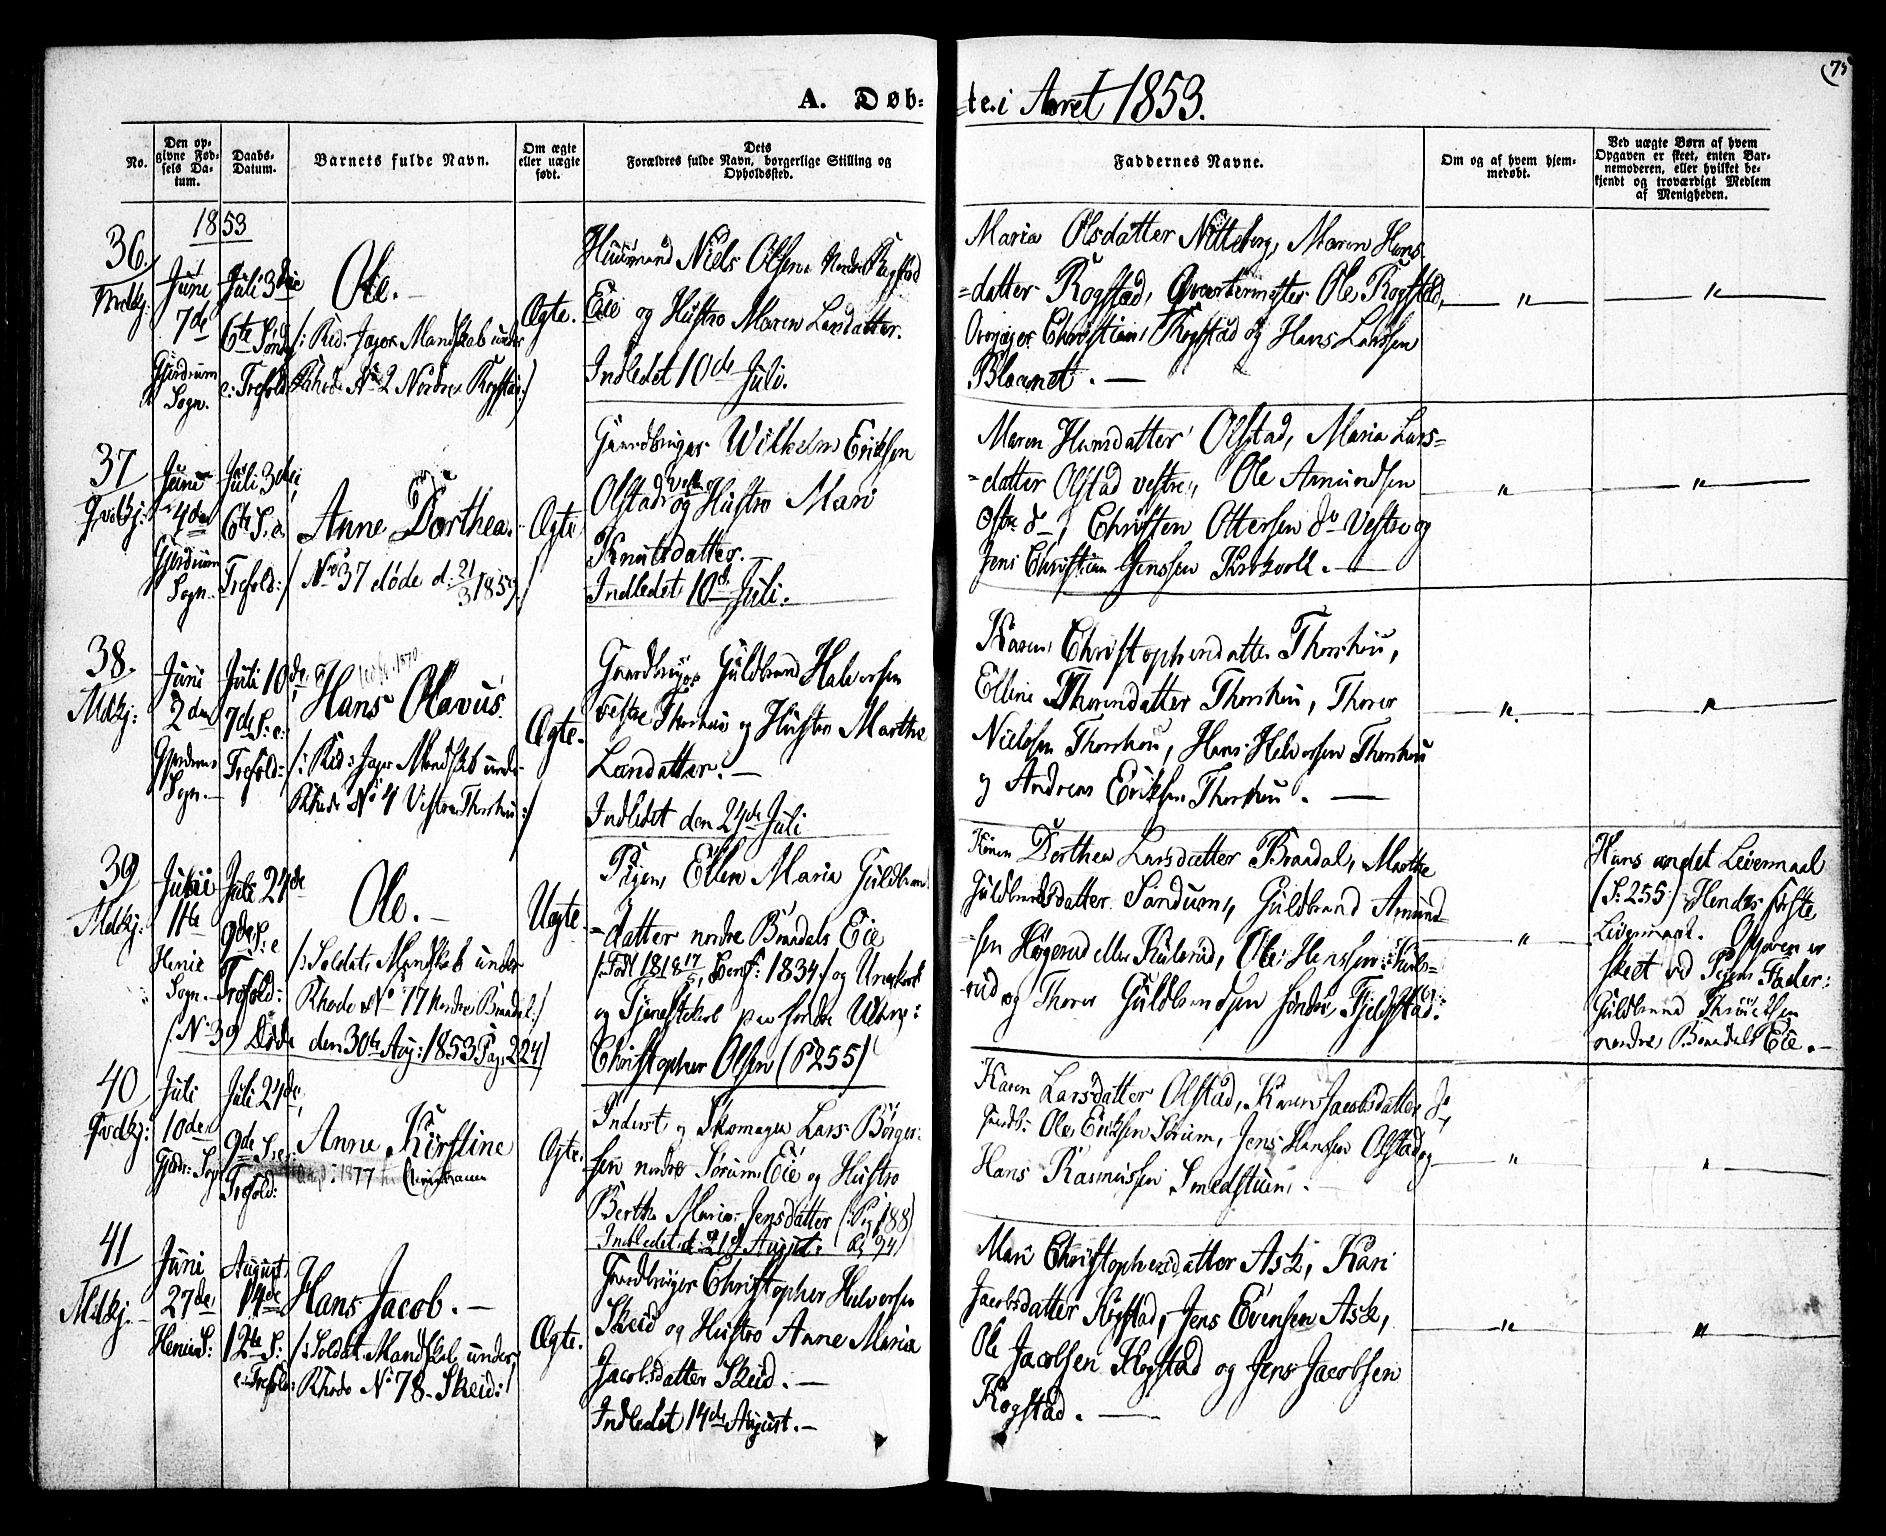 75
A. Døb-
te i Aaret 1853.
No.
Den op-
givne Fød-
sels Da-
tum.
Daabs-
Datum.
Barnets fulde Navn.
Om ægte
eller uægte
født.
Dets
Forældres fulde Navn, borgerlige Stilling og
Opholdssted.
Faddernes Navne.
Om og af hvem hjem-
medøbt.
Ved uægte Børn af hvem
Opgaven er skeet, enten Bar-
nemoderen, eller hvilket be-
kjendt og troværdigt Medlem
af Menigheden.
1853
36.
Mdkj:
Juni
7de
Gjerdrum
Sogn.
Juli 3die
6te Sønd.
e: Trefold:
Ole. —
/: Rid: Jager Mandskab under
Rhode No 2 Nordre Rogstad :/
Ægte.
Huusmand Niels Olsen Nordre Rogstad
Eie og Hustro Maren Larsdatter.
Indledet 10de Juli.
Maria Olsdatter Nitteberg, Maren Hans-
=datter Rogstad, Qvarteermester Ole Rogstad,
Christian Rogstad og Hans Larssen
Blaanet. —
"
"
37
Qvdkj:
Juni
4de
Gjerdrum
Sogn.
Juli 3die
6te S. e.
Trefold:/
Anne Dorthea.
/ No 37 døde d: 21/3 1859 /
Ægte
Gaardbruger Wilhelm Eriksen
Olstad vestre og Hustro Mari
Knutsdatter. —
Indledet 10de Juli.
Maren Hansdatter Olstad, Maria Lars=
=datter Olstad vestre, Ole Amundsen
Østre do, Christen Ottersen do Vestre og
Jens Christian Jenssen —
"
"
38.
Mdkj:
Juni
2den
Gjerdrum
Sogn. —
Juli 10de
7de S: e:
Trefold:
1870.
Hans Olavus.
/: Rid: Jager Mandskab under
Rhode No 4 Vestre Thorshou :/
Ægte.
Gaardbruger Guldbrand Halvorsen
vestre Thorshou og Hustro Marthe
Larsdatter. —
Indledet den 24de Juli
Karen Christophersdatter Thorshou,
Elline Thorersdatter Thorshou, Thorer
Nielssen Thorshou, Hans Helvorsen Thorshou
og Andreas Eriksen Thorshou. —
"
"
39
Mdkj:
Juni
11te
Henie
Sogn. —
Juli 24de
9de S: e
Trefold:
Ole. —
/: Soldat, Mandskab under
Rhode No 77 nordre Brandal :/
(No 39) Døde den 30te Aug: 1853 Pag. 224)
Uægte.
Pigen Ellen Maria Guldbrands
=datter nordre Brandals Eie
/: Født 1818 17/5, Conf: 1834 :/ og Ungkarl
og Tjenestekarl paa søndre
Christopher Olsen (P 255)
Karen Dorthea Larsdatter Brandal, Marthe
Guldbrandsdatter Sandum, Guldbrand Amund
=sen Høgerud eller Kulsrud, Ole Hanssen Kuls=
=rud og Thorer Guldbrandsen søndre Fjeldstad.
"
Hans andet Leiermaal
(P: 255) Hendes første
Leiermaal. Opgaven er
skeet ved Pigens Fader:
Guldbrand
nordre Brandals Eie. —
40
Qvdkj:
Juli
10de
Gjerdr: Sogn
Juli 24de,
9de S. e.
Trefold:
Anne Kirstine
1877 Christiania
Ægte.
Inderst og Skomager Lars Børger-
sen nordre Sørum Eie og Hustro
Berthe Maria Jensdatter (Pag 188)
Indledet d: 21de August:
Karen Larsdatter Olstad, Karen Jacobsdatter do,
Ole Eriksen Sørum, Jens Hanssen Olstad og
Hans Rasmussen Smedstuen. —
"
"
41
Mdkj. —
Juni
27de
Henie S:
August
14de
12te S:
e. Trefold:
Hans Jacob. —
/: Soldat Mandskab under
Rhode No 78 Skeid :/
Ægte.
Gaardbruger Christopher Halvorsen
Skeid og Hustro Anne Maria
Jacobsdatter Skeid. —
Indledet 14de August. —
Mari Christophersdatter Ask, Kari
Jacobsdatter Kogstad, Jens Evensen Ask,
Ole Jacobsen Kogstad og Jens Jacobsen
Kogstad. —
"
"